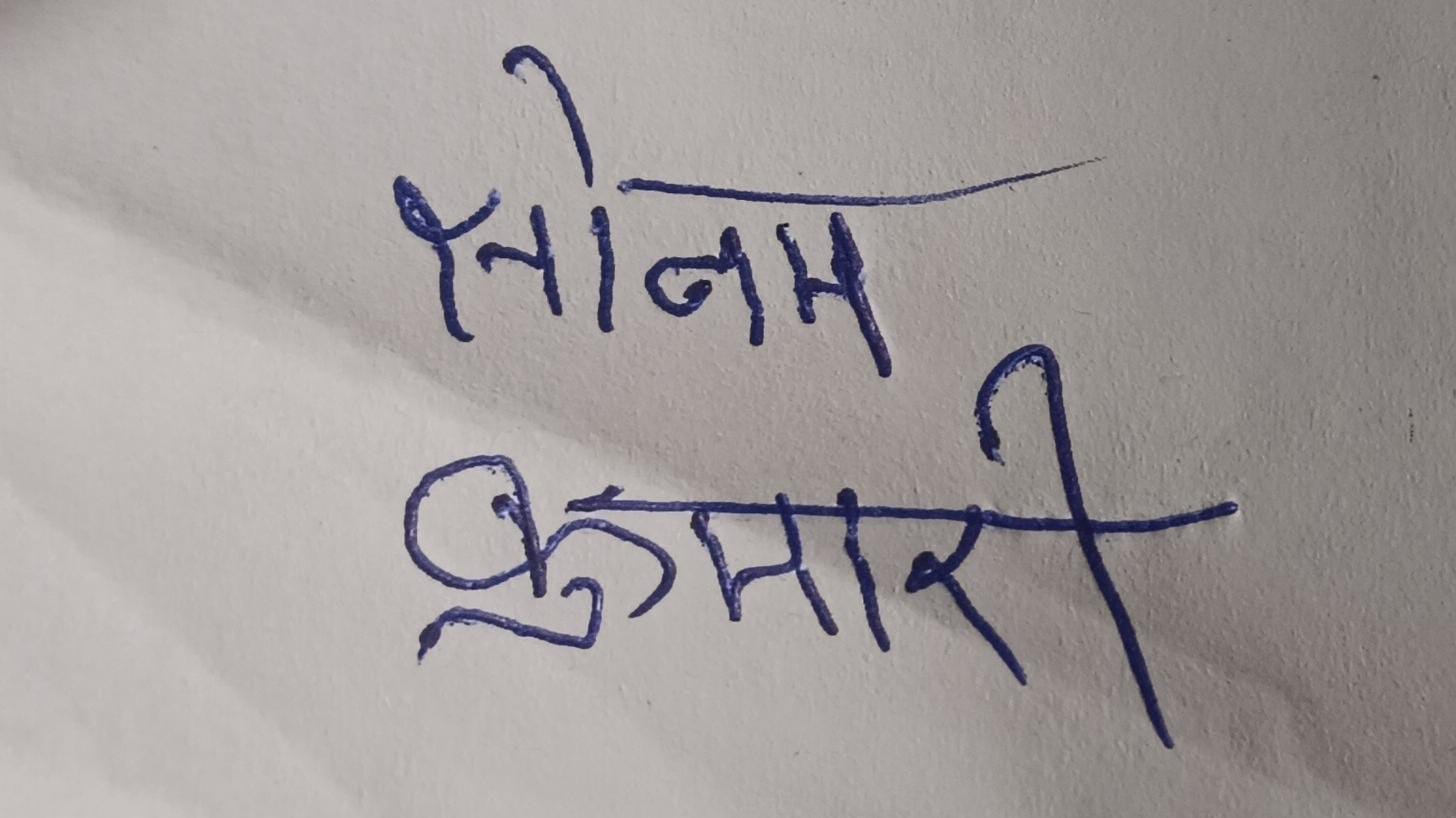 सोनम
कुमारी